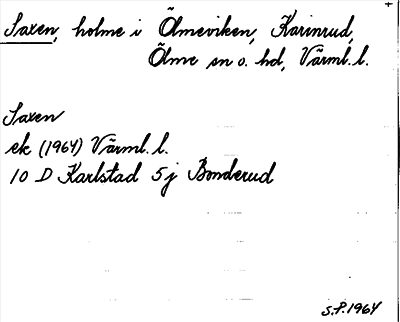 Saxen, holme i Ölmeviken, Karinrud,
Ölme sn o. hd, Värml. l.
Saxen
ek (1964) Värml. l.
10 D Karlstad 5j Bonderud
S.P. 1964